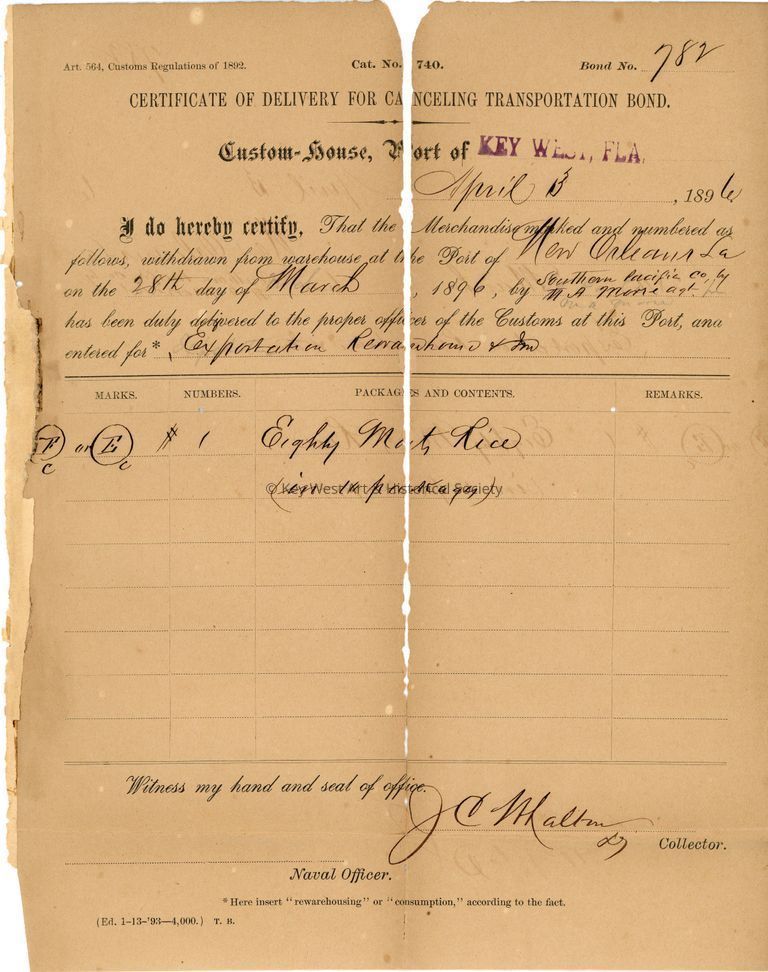 Art. 564, Customs Regulations of 1892. Cat. No. 740. Bond No. 782
CERTIFICATE OF DELIVERY FOR CANCELING TRANSPORTATION BOND.
Custom-House, Port of KEY WEST, FLA.
April 3, 1896
I do hereby certify, That the Merchandise marked and numbered as
follows, withdrawn from warehouse at the Port of New Orleans La
on the 28th day of March, 1896, by Southern Pacific Co, by
agt.
has been duly delivered to the proper officer of the Customs at this Port, and
entered for* Exportation
MARKS. NUMBERS. PACKAGES AND CONTENTS. REMARKS.
F C or E C # 1 Eighty Mats Rice
© Key West Art & Historical Society
Witness my hand and seal of office.
J C Whalton
Dy Collector.
Naval Officer.
*Here insert "rewarehousing" or "consumption," according to the fact.
(Ed. 1-13-'93—4,000.) T. B.